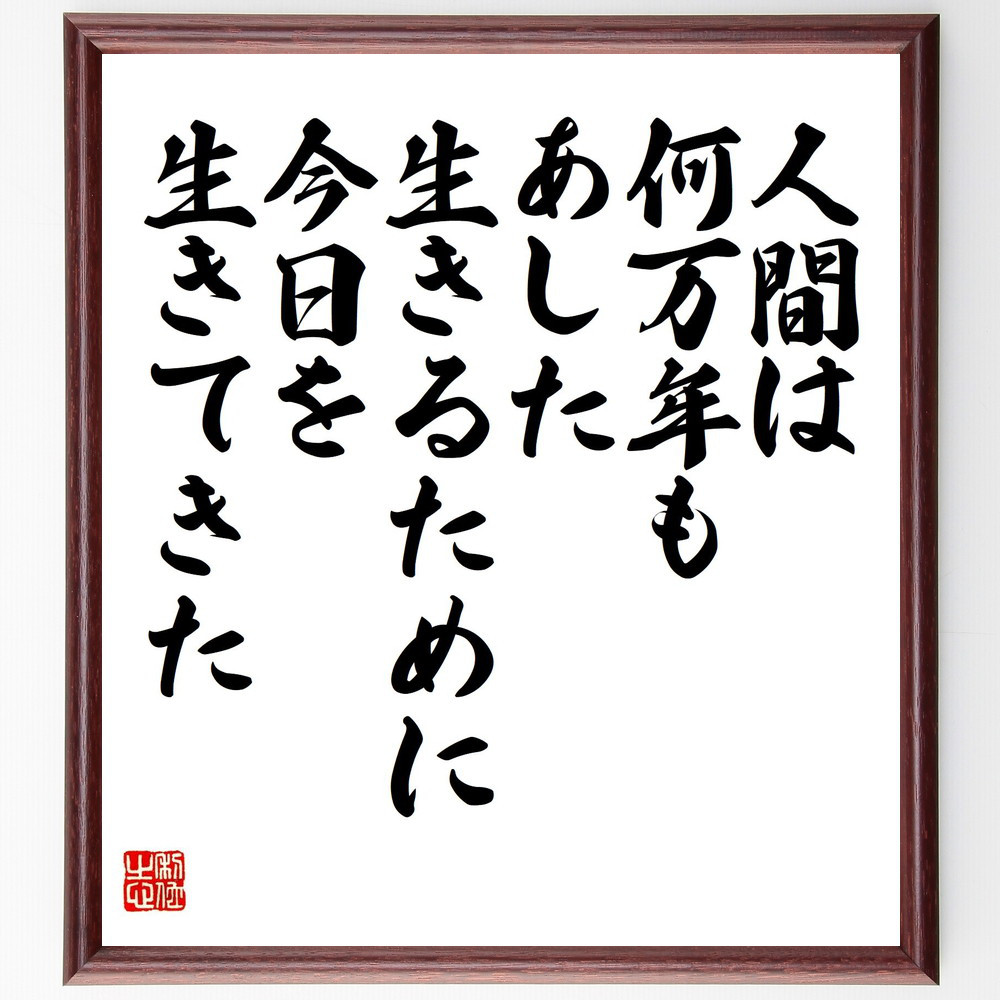 人間は
何万年も
あした
生きるために
今日を
生きてきた